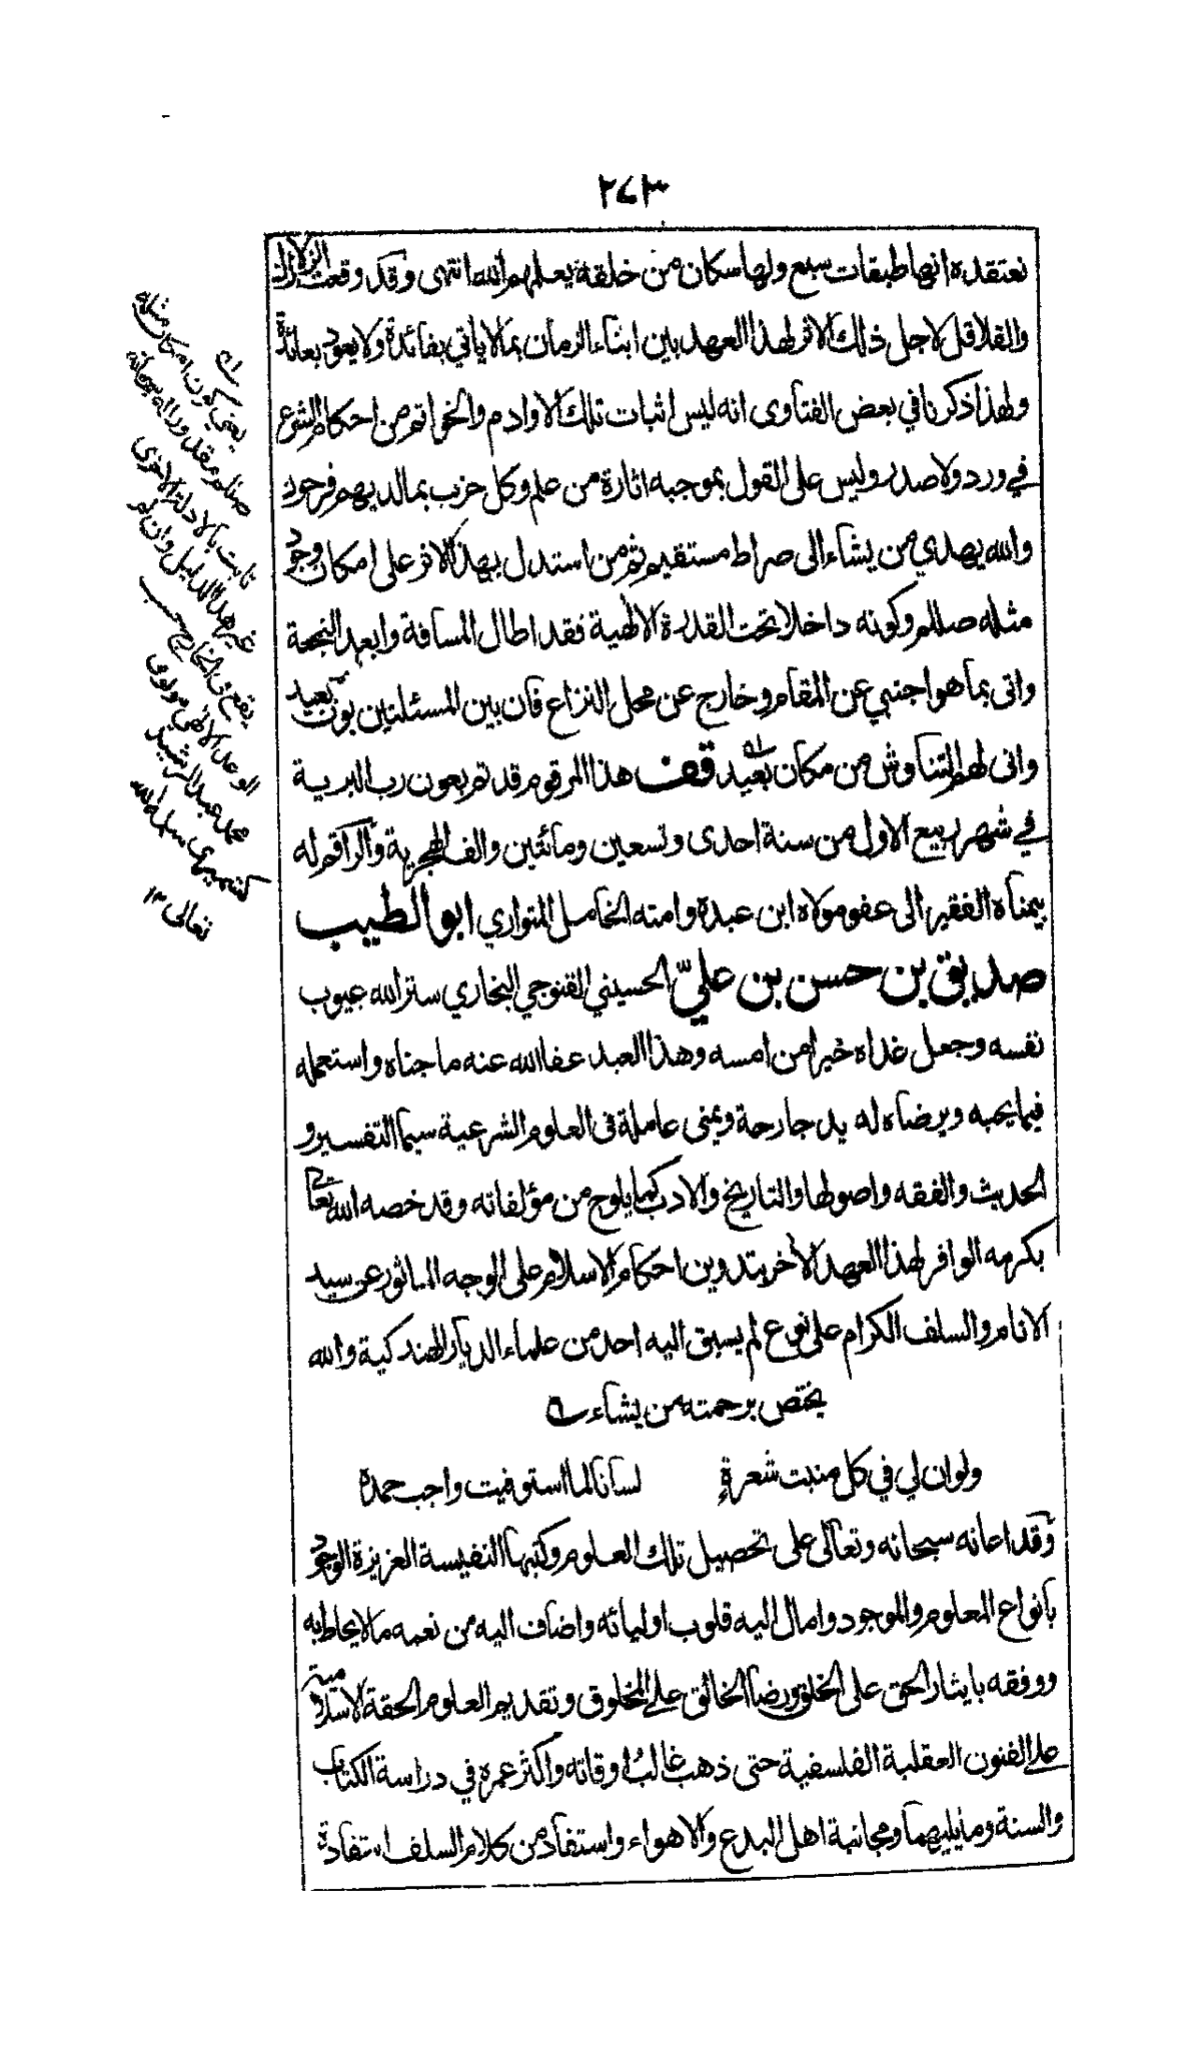 ٢٧٣
نعتقده انها طبقات سبع ولها سكان من خلقه يعلمهم الله انتهى وقد وقعت الزلازل
والقلاقل لاجل ذلك الاثر لهذا العهد بين ابناء الزمان بما لا ياتي بفائدة ولا يعود بعائدة
ولهذا ذكرنا في بعض الفتاوى انه ليس اثبات تلك الاوادم والخواتم من احكام الشرع
في ورد ولا صدر وليس على القول بموجبه اثارة من علم وكل حزب بما لديهم فرحون
والله يهدي من يشاء الى صراط مستقيم ثم من استدل بهذا الاثر على امكان وجود
مثله صللم وكونه داخلا تحت القدرة الالهية فقد اطال المسافة وابعد النجعة
واتى بما هو اجنبي عن المقام وخارج عن محل النزاع فان بين المسئلتين بون بعيد
وانى لهم التناوش من مكان بعيد قف هذا المرقوم قد تم بعون رب البرية
في شهر ربيع الاول من سنة احدى وتسعين ومائتين والف الهجرية والراقم له
بيمناه الفقير الى عفو مولاه ابن عبده وامته الخامل المتواري ابو الطيب
صديق بن حسن بن عليّ الحسيني القنوجي البخاري ستر الله عيوب
نفسه وجعل غداه خيرا من امسه وهذا العبد عفا الله عنه ما جناه واستعمله
فيما يحبه ويرضاه له يد جارحة ويمنى عاملة فى العلوم الشرعية سيما التفسير و
الحديث والفقه واصولها والتاريخ والادب كما يلوح من مؤلفاته وقد خصه الله تعالى
بكرمه الوافر لهذا العهد الاخر بتدوين احكام الاسلام على الوجه الماثور عن سيد
الانام والسلف الكرام على نوع لم يسبق اليه احد من علماء الديار الهندكية والله
يختص برحمته من يشاء
ولوان لي في كل منبت شعرةٍ لسانا لما استوفيت واجب حمده
وقد اعانه سبحانه وتعالى على تحصيل تلك العلوم وكتبها النفيسة العزيزة الوجود
بانواع المعلوم والموجود وامال اليه قلوب اوليائه واضاف اليه من نعمه ما لا يحاط به
ووفقه بايثار الحق على الخلق ورضا الخالق على المخلوق وتقديم العلوم الحقة الاسلامية
على الفنون العقلية الفلسفية حتى ذهب غالبُ اوقاته واكثر عمره في دراسة الكتاب
والسنة وما يليهما ومجانبة اهل البدع والاهواء واستفاد من كلام السلف استفادة
يعني كون امكان مثله
صللم مقدور الله سبحانه
ثابت بالادلة الاخرى
غير هذا الدليل وان لم
يقع فى الخارج حسب
الوعد الالهي مولوى
محمد عبد الرشيد
كشميرى سلمه الله
تعالى ١٢